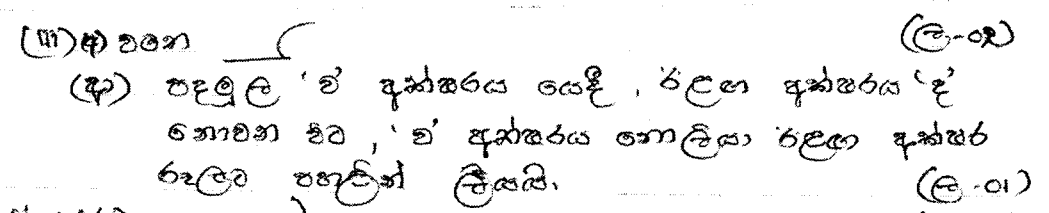 (iii) අ) වනෙ (ල-02)
(ආ) පදමුල 'ව' අක්ෂරය යෙදී, ඊළඟ අක්ෂරය 'ද'
නොවන විට, 'ව' අක්ෂරය නොලියා ඊළඟ අක්ෂර
රූලට පහළින් ලියයි. (ල-01)